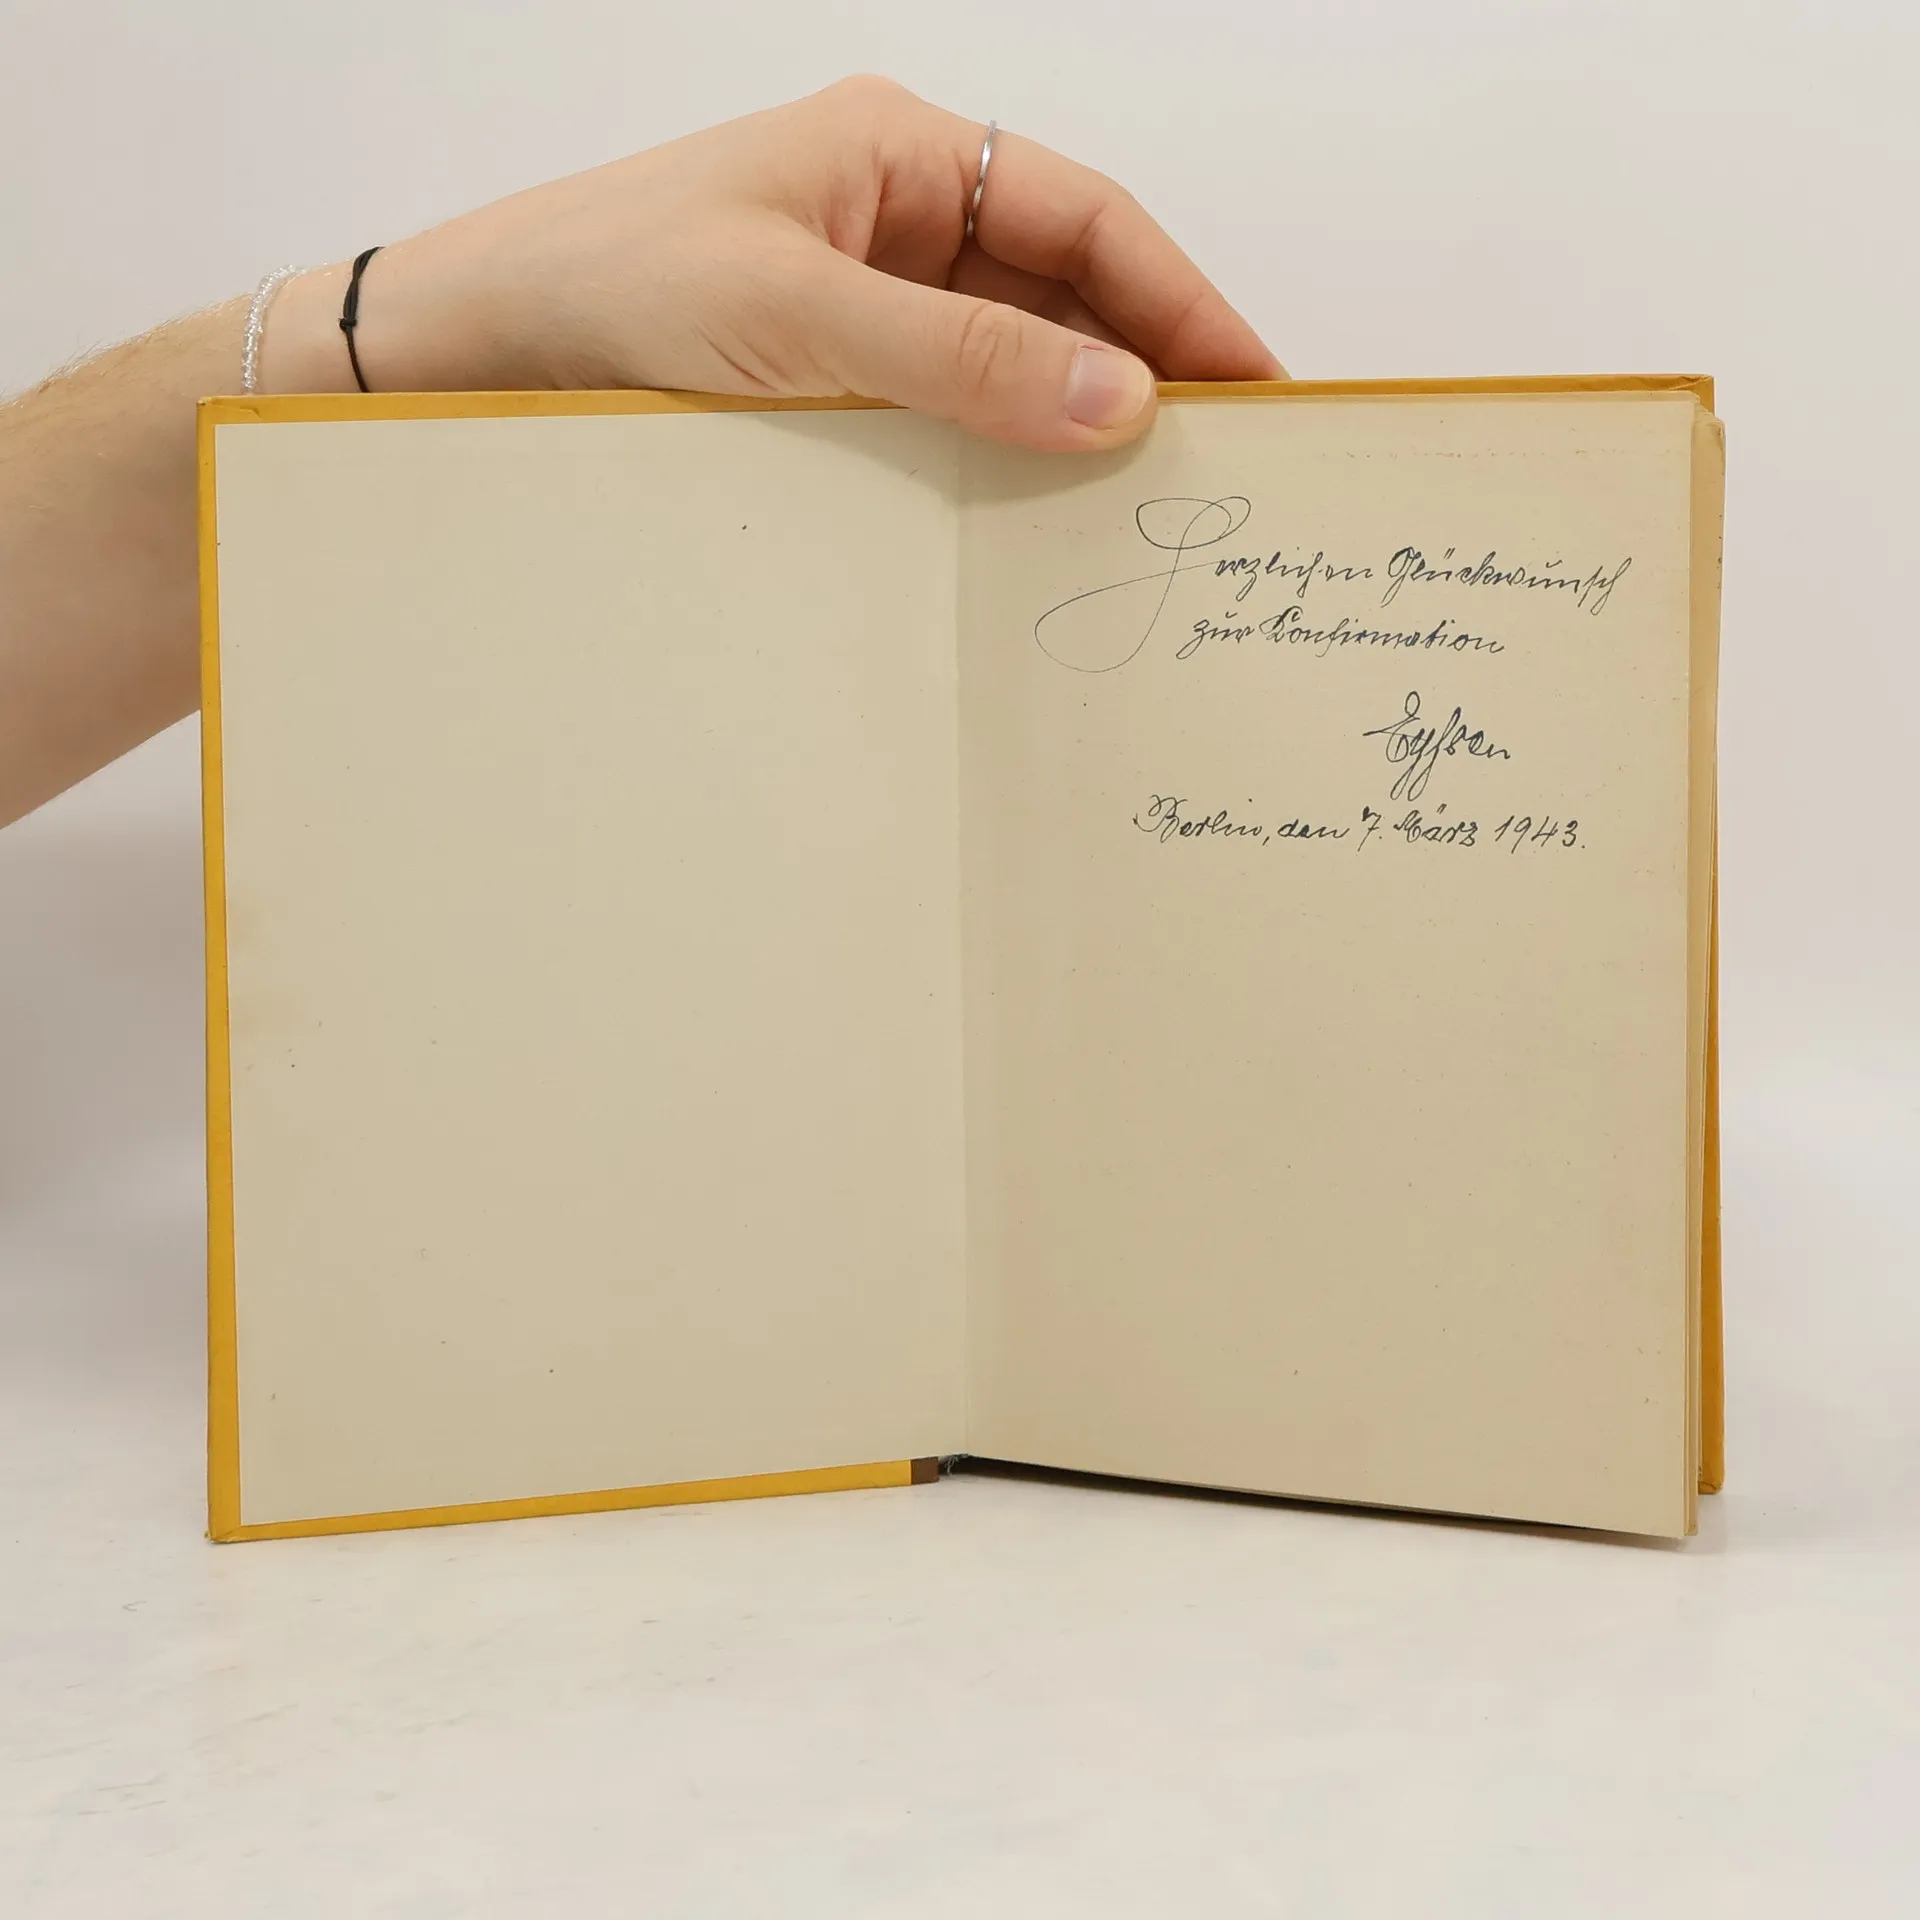 Herzlichen Glückwunsch
zur Konfirmation
Berlin, den 7. März 1943.